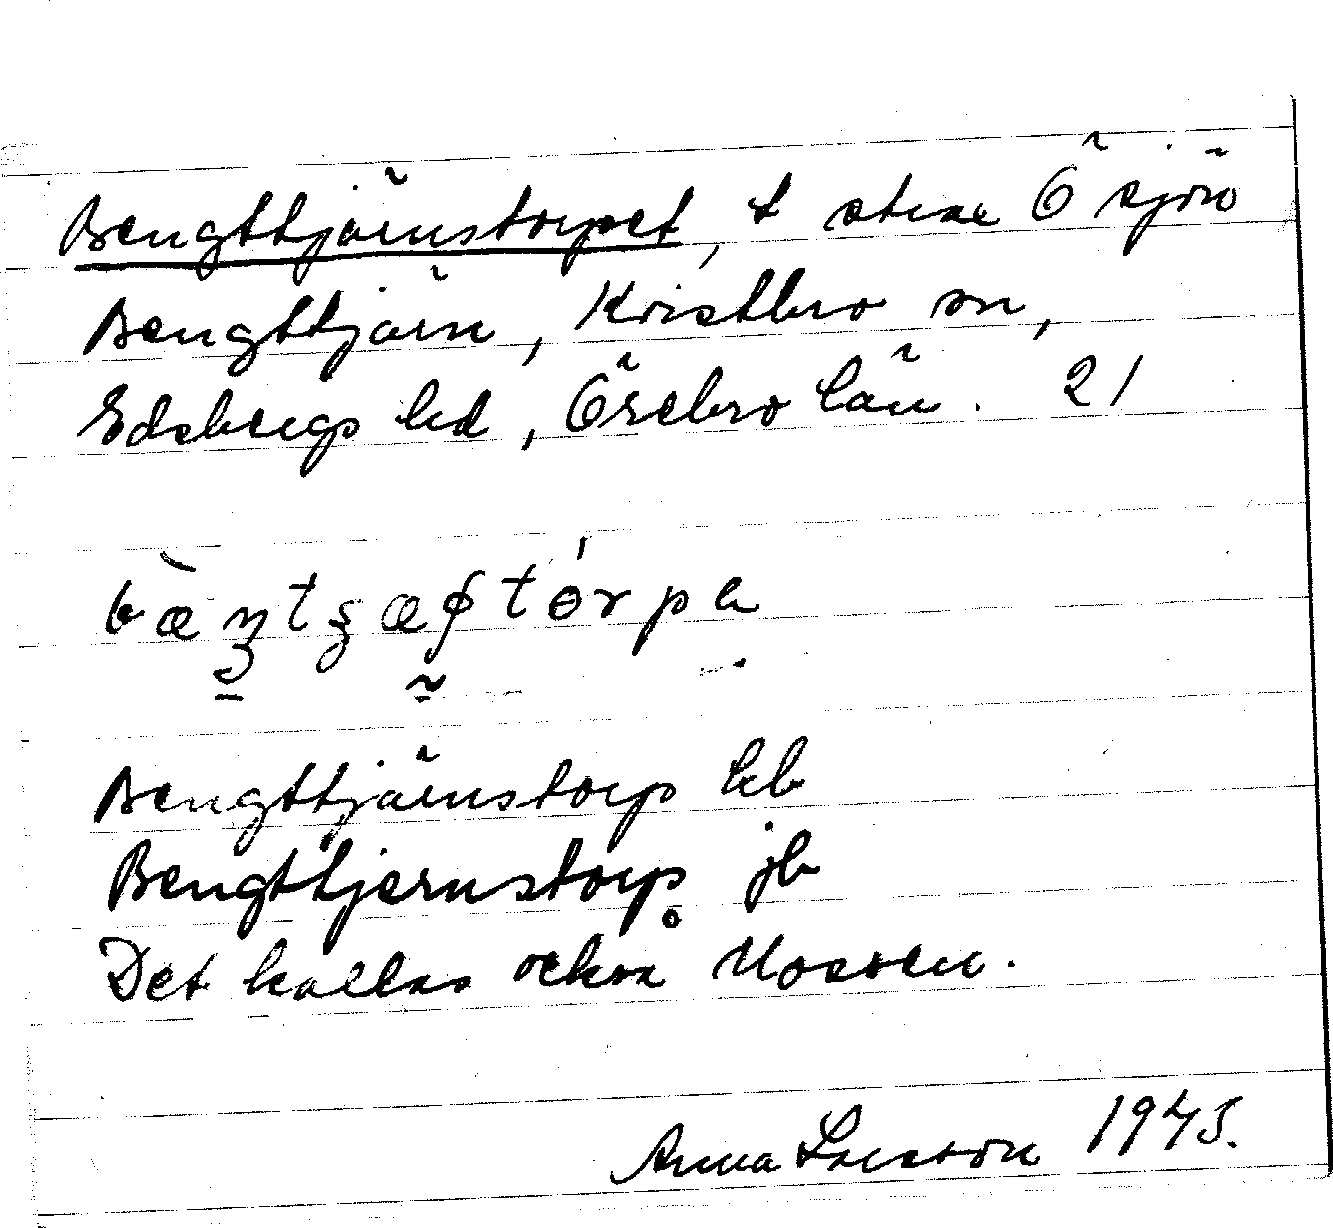 Bengttjärnstorpet, t stxx Ö sjön
Bengttjärn, Kvistbro sn,
Edsbergs hd, Örebro län. 21
bæŋtʒæɽstɵrpa
Bengttjärnstorp kb
Bengttjernstorp jb
Det kallas också Mossen.
Anna Larsson 1945.